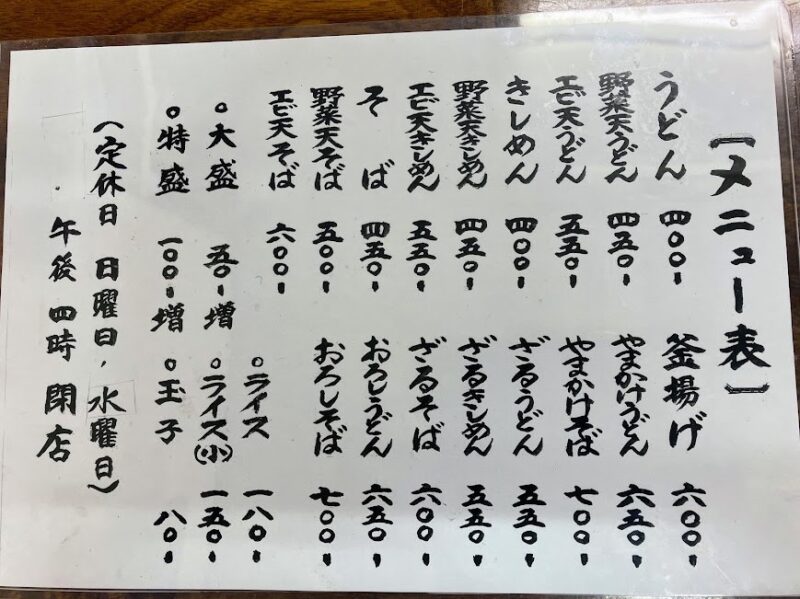 【メニュー表】
うどん 四〇〇-
野菜天うどん 四五〇-
エビ天うどん 五五〇-
きしめん 四〇〇-
野菜天きしめん 四五〇-
エビ天きしめん 五五〇-
そば 四五〇-
野菜天そば 五〇〇-
エビ天そば 六〇〇-
○大盛 五〇-増
○特盛 一〇〇-増
釜揚げ 六〇〇-
やまかけうどん 六五〇-
やまかけそば 七〇〇-
ざるうどん 五五〇-
ざるきしめん 五五〇-
ざるそば 六〇〇-
おろしうどん 六五〇-
おろしそば 七〇〇-
○ライス 一八〇-
○ライス(小) 一五〇-
○玉子 八〇-
(定休日 日曜日,水曜日)
午後四時閉店